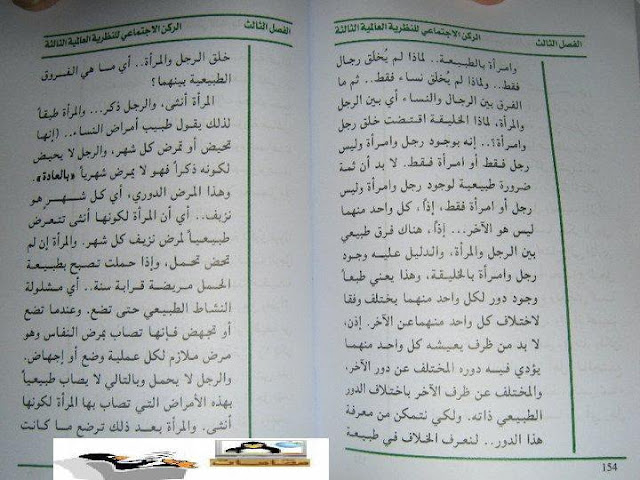 الفصل الثالث
الركن الاجتماعي للنظرية العالمية الثالثة
وامرأة بالطبيعة.. لماذا لم يُخلق رجال
فقط.. ولماذا لم يُخلق نساء فقط.. ثم ما
الفرق بين الرجال والنساء أي بين الرجل
والمرأة، لماذا الخليقة اقتضت خلق رجل
وامرأة؟.. إنه بوجود رجل وامرأة وليس
رجل فقط أو امرأة فقط. لا بد أن ثمة
ضرورة طبيعية لوجود رجل وامرأة وليس
رجل أو امرأة فقط، إذاً، كل واحد منهما
ليس هو الآخر... إذاً، هناك فرق طبيعي
بين الرجل والمرأة، والدليل عليه وجود
رجل وامرأة بالخليقة، وهذا يعني طبعاً
وجود دور لكل واحد منهما يختلف وفقا
لاختلاف كل واحد منهماعن الآخر. إذن،
لا بد من ظرف يعيشه كل واحد منهما
يؤدي فيه دوره المختلف عن دور الآخر،
والمختلف عن ظرف الآخر باختلاف الدور
الطبيعي ذاته. ولكي نتمكن من معرفة
هذا الدور.. لنعرف الخلاف في طبيعة
154
الركن الاجتماعي للنظرية العالمية الثالثة
الفصل الثالث
خلق الرجل والمرأة.. أي ما هي الفروق
الطبيعية بينهما؟
المرأة أنثى، والرجل ذكر... والمرأة طبقاً
لذلك يقول طبيب أمراض النساء.. (إنها
تحيض أو تمرض كل شهر، والرجل لا يحيض
لكونه ذكراً فهو لا يمرض شهرياً «بالعادة».
وهذا المرض الدوري، أي كل شهر هو
نزيف.. أي أن المرأة لكونها أنثى تتعرض
طبيعياً لمرض نزيف كل شهر. والمرأة إن لم
تحض تحمل، وإذا حملت تصبح بطبيعة
الحمل مريضة قرابة سنة.. أي مشلولة
النشاط الطبيعي حتى تضع. وعندما تضع
أو تجهض فإنها تصاب بمرض النفاس وهو
مرض ملازم لكل عملية وضع أو إجهاض.
والرجل لا يحمل وبالتالي لا يصاب طبيعياً
بهذه الأمراض التي تصاب بها المرأة لكونها
أنثى. والمرأة بعد ذلك ترضع ما كانت